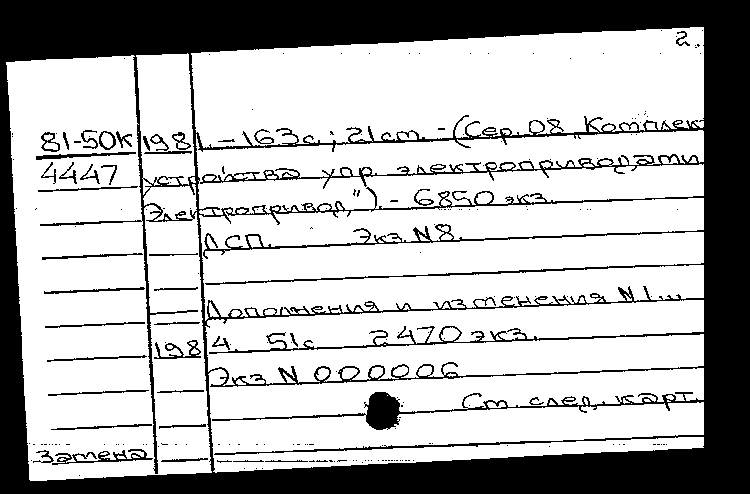 2.
81-50К 1981. – 163с.; 21 см. – (Сер. 08 „Комплек
4447 устройства упр. электроприводами
Электропривод,") . – 6850 экз.
ДСП. Экз. N 8.
Дополнения и изменения N 1...
1984. 51с 2470 экз.
Экз N 000006
См. след. карт.
Замена